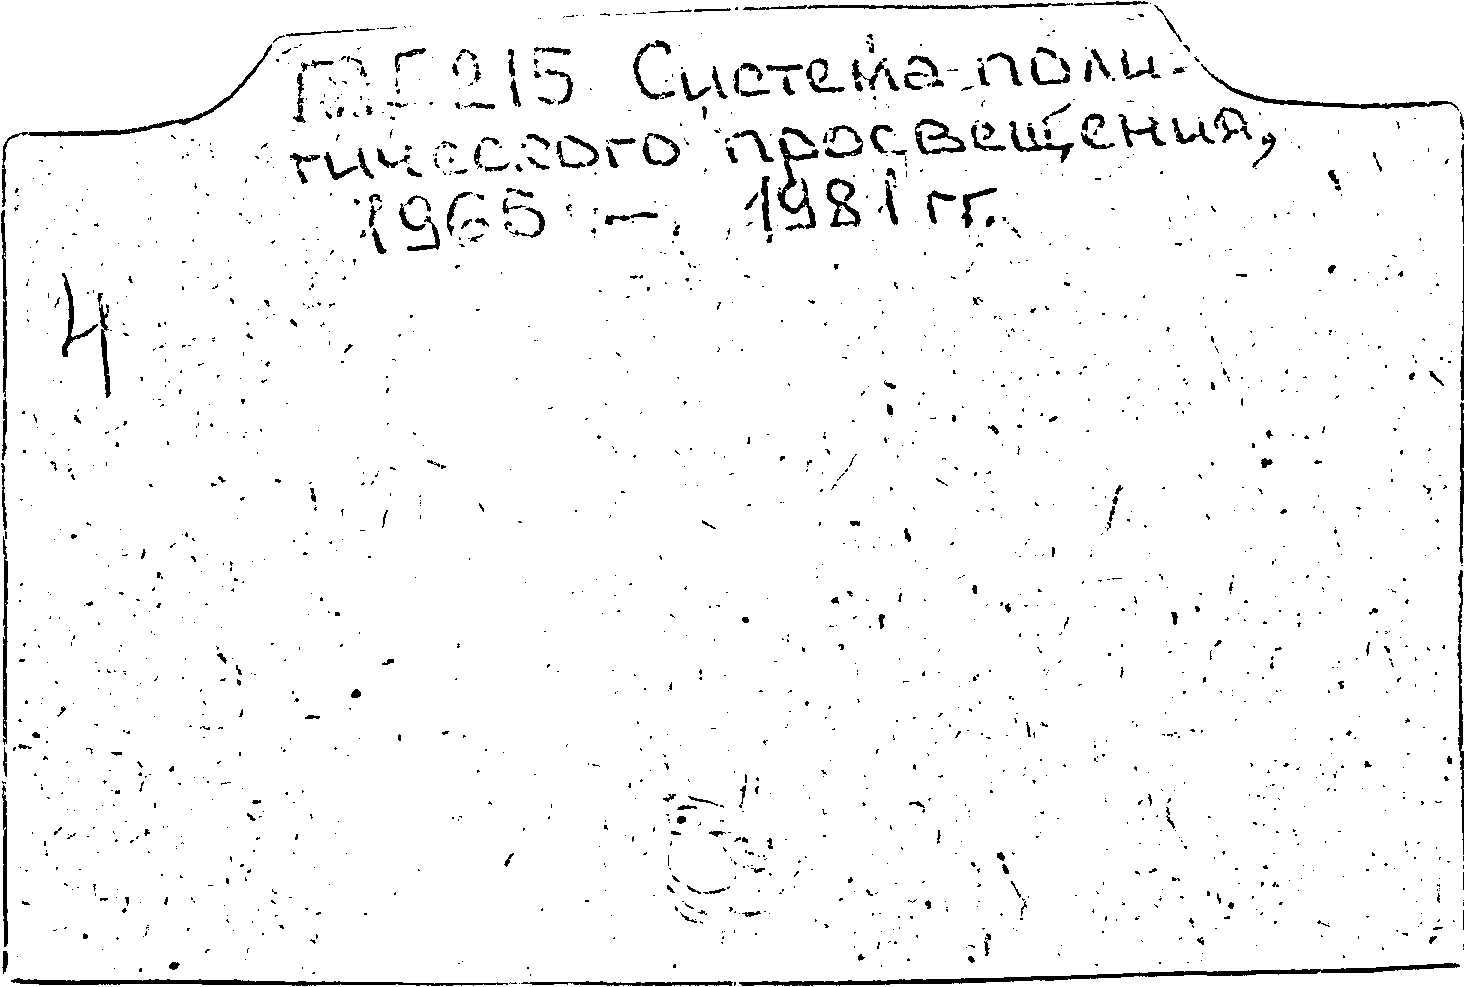 215 Система поли-
тического просвещения,
1965 - 1981 гг.
4